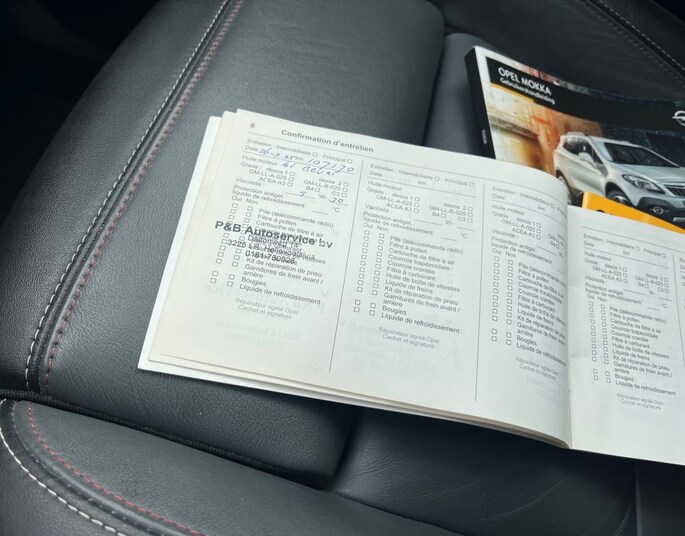 OPEL MOKKA
Gebruikershandleiding
6
Confirmation d'entretien
Entretien : Intermédiaire Principal
Date 26-3-25 km 107170
Huile moteur
Grade : dexos 1 dexos 2
GM-LL-A-025 GM-LL-B-025
ACEA A3 B4 C3
Viscosité : 5 W- 30
Protection antigel,
liquide de refroidissement °C
Oui Non
Pile (télécommande radio)
Filtre à pollen
Cartouche de filtre à air
P&B Autoservice bv
3225 LR Hellevoetsluis
Kit de réparation de pneu
Garnitures de frein avant /
arrière
Bougies
Liquide de refroidissement
Réparateur agréé Opel
Cachet et signature
Entretien : Intermédiaire Principal
Date km
Huile moteur
Grade : dexos 1 dexos 2
GM-LL-A-025 GM-LL-B-025
ACEA A3 B4 C3
Viscosité : W-
Protection antigel,
liquide de refroidissement °C
Oui Non
Pile (télécommande radio)
Filtre à pollen
Cartouche de filtre à air
Courroie trapézoïdale
Courroie crantée
Filtre à carburant
Huile de boîte de vitesses
Liquide de freins
Kit de réparation de pneu
Garnitures de frein avant /
arrière
Bougies
Liquide de refroidissement
Réparateur agréé Opel
Cachet et signature
Entretien : Intermédiaire Principal
Date km
Huile moteur
Grade : dexos 1
GM-LL-A-025
ACEA A3 B4
Viscosité : W-
Protection antigel,
liquide de refroidissement
Oui Non
Pile (télécommande radio)
Filtre à pollen
Cartouche de filtre à air
Courroie trapézoïdale
Courroie crantée
Filtre à carburant
Huile de boîte de vitesses
Liquide de freins
Kit de réparation de pneu
Garnitures de frein avant /
arrière
Bougies
Liquide de refroidissement
Réparateur agréé Opel
Cachet et signature
Entretien : Intermédiaire Principal
Date km
Huile moteur
Grade : dexos 1
GM-LL-A-025
ACEA A3
Viscosité :
Protection antigel,
liquide de refroidissement
Oui Non
Pile (télécommande radio)
Filtre à pollen
Cartouche de filtre à air
Courroie trapézoïdale
Courroie crantée
Filtre à carburant
Huile de boîte de vitesses
Liquide de freins
Kit de réparation de pneu
Garnitures de frein avant /
arrière
Bougies
Liquide de refroidissement
Réparateur agréé Opel
Cachet et signature